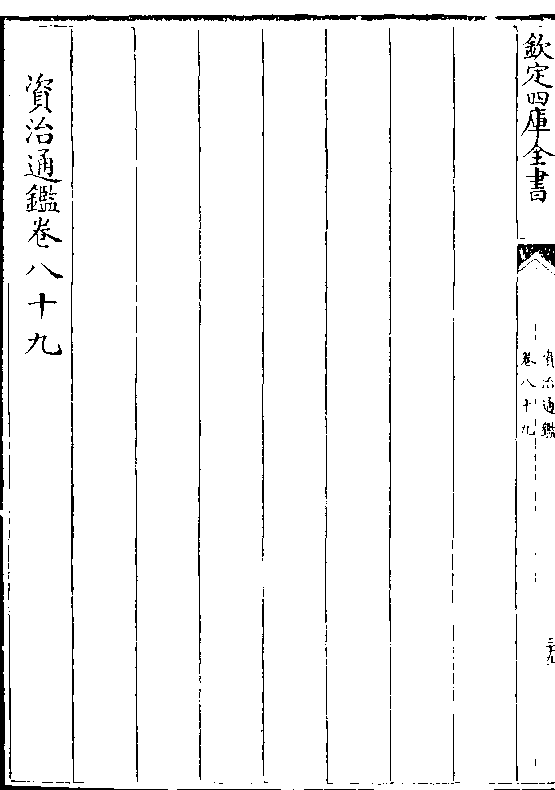 欽定四庫全書
資治通鑑
卷八十九
三十九
資治通鑑卷八十九